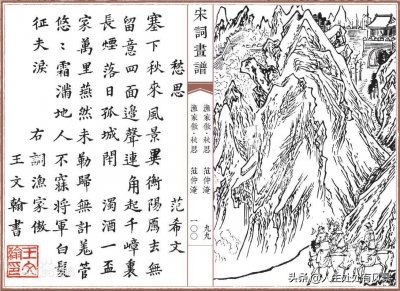 宋詞畫譜
漁家傲·秋思 范仲淹 九九
漁家傲·秋思 范仲淹 一〇〇
愁思 范希文
塞下秋來風景異衡陽雁去無
留意四面邊聲連角起千嶂裏
長煙落日孤城閉濁酒一盃
家萬里燕然未勒歸無計羌管
悠〻霜滿地人不寐將軍白髮
征夫淚 右詞漁家傲
王文翰書
王文翰印
头条 @人生处处有风景